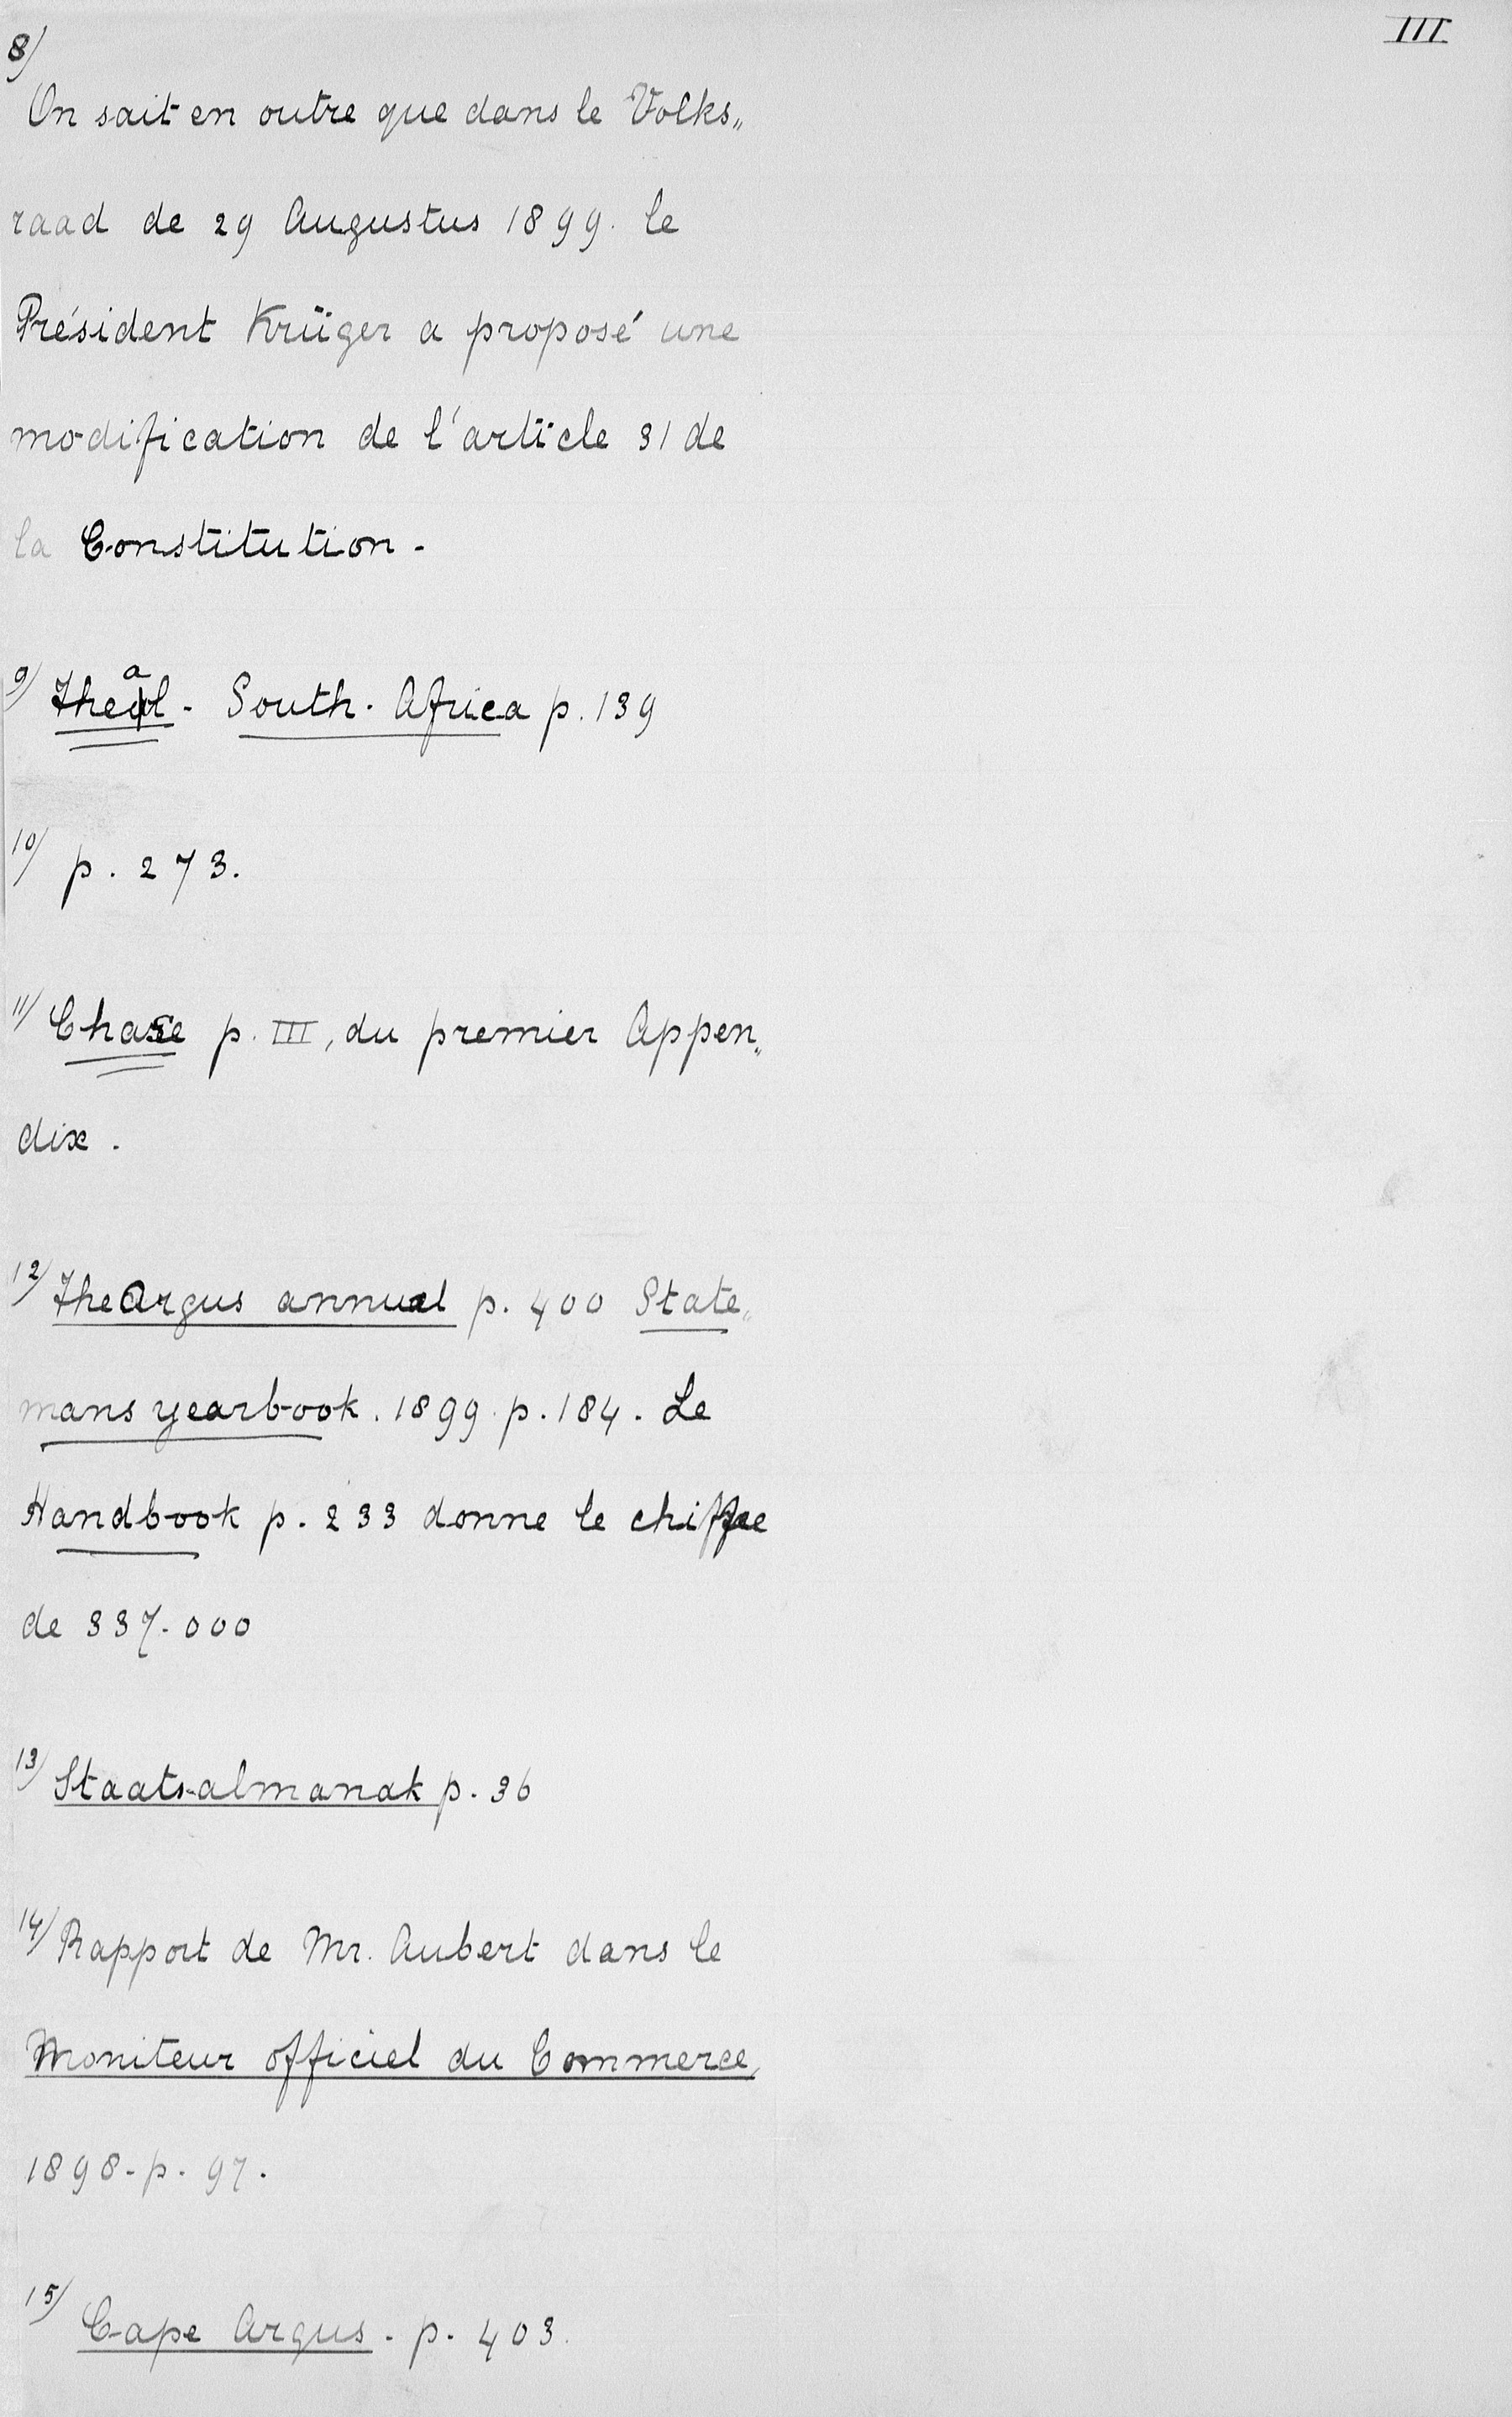 III
8)
On sait en outre que dans le Volks„
raad de 29 Augustus 1899. le
Président Krüger a proposé une
modification de l'article 31 de
la Constitution.
9) Theal - South. Africa p. 139
10) p. 273.
11) Chase p. III, du premier Appen„
dix.
12) The Argus annual p. 400 State„
mans yearbook. 1899. p. 184. Le
Handbook p. 233 donne le chiffre
de 337.000
13) Staats-almanak p. 36
14) Rapport de Mr. Aubert dans le
Moniteur officiel du Commerce,
1898-p. 97.
15) Cape Argus. p. 403.